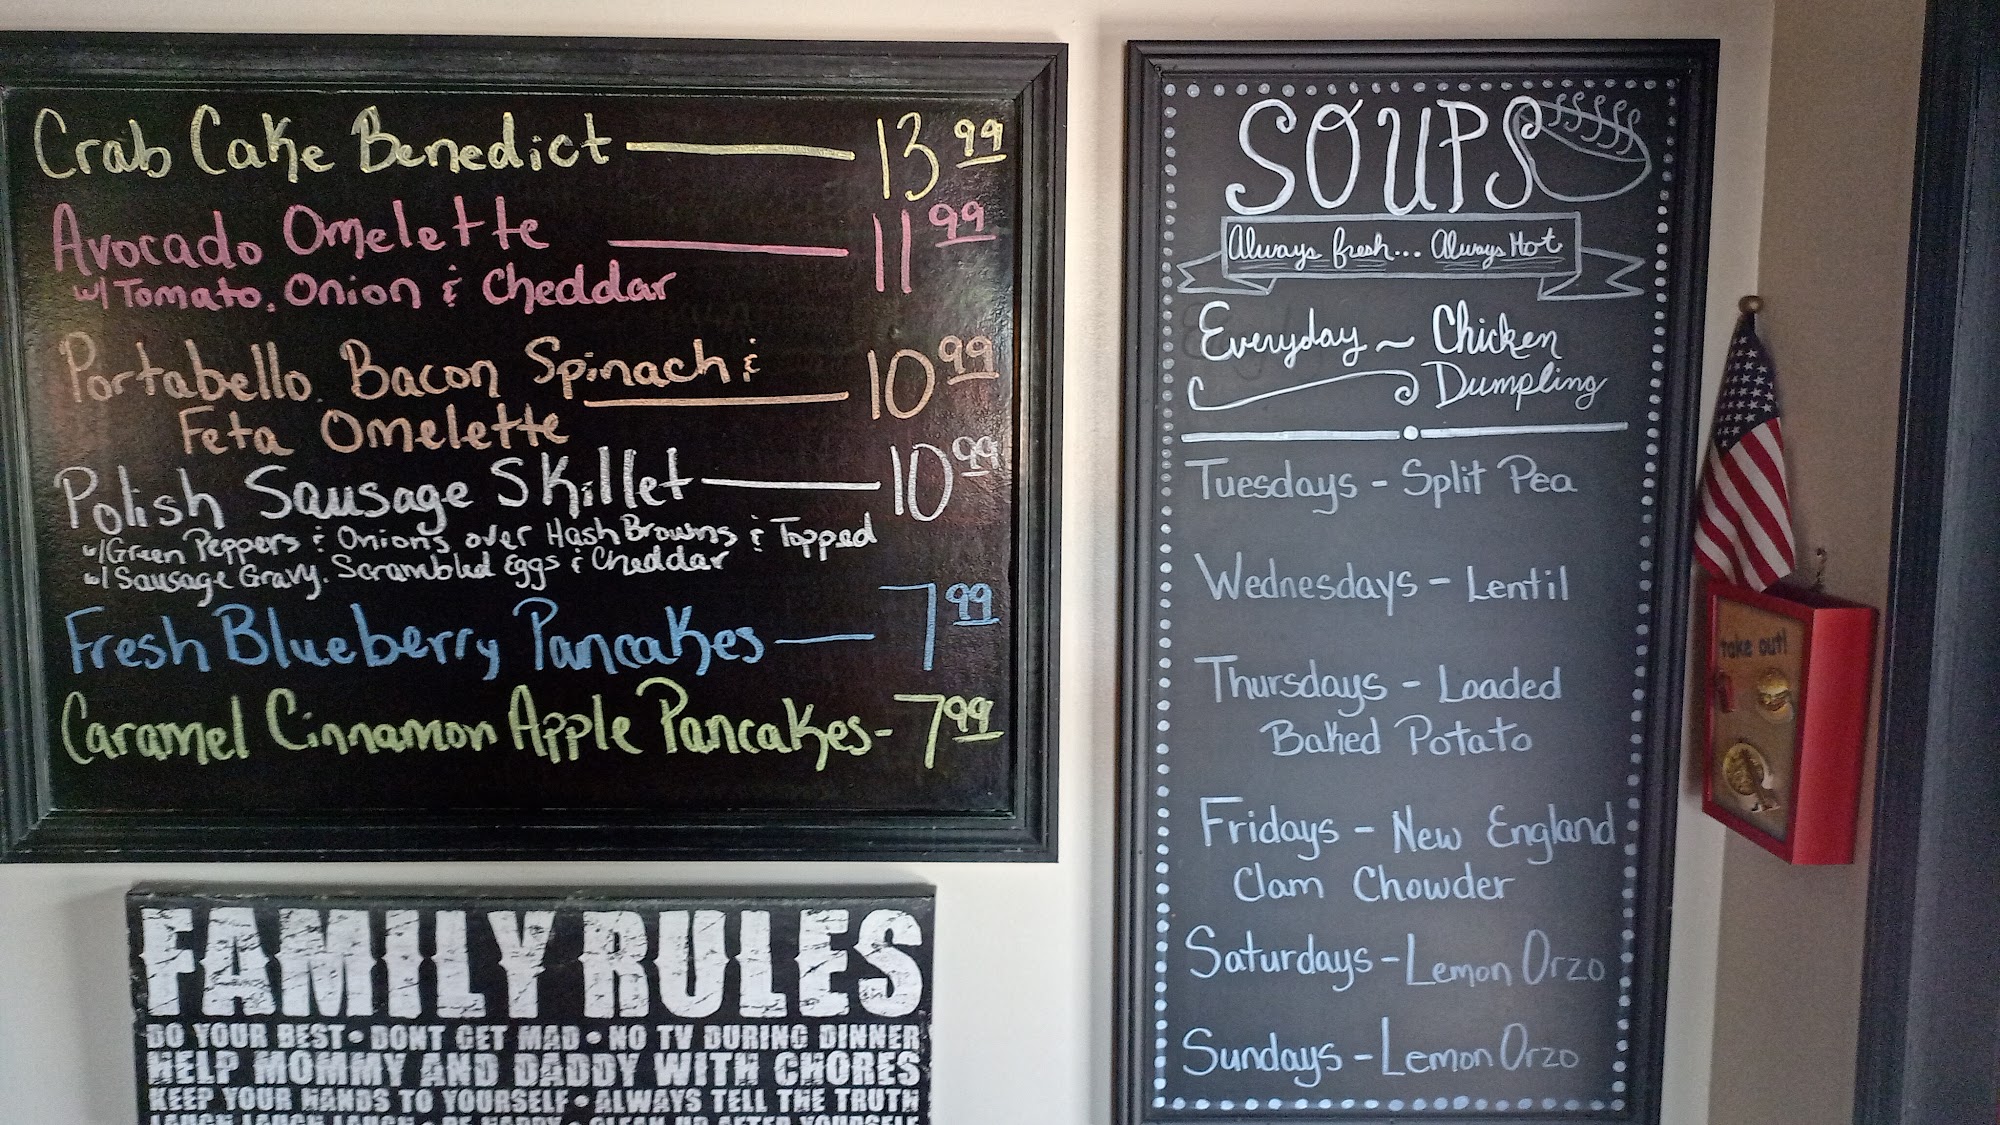 Crab Cake Benedict 13.99
Avocado Omelette 11.99
w/ Tomato, Onion & Cheddar
Portabello, Bacon Spinach & 10.99
Feta Omelette
Polish Sausage Skillet 10.99
w/ Green Peppers & Onions over Hash Browns & Topped
w/ Sausage Gravy, Scrambled Eggs & Cheddar
Fresh Blueberry Pancakes 7.99
Caramel Cinnamon Apple Pancakes - 7.99
FAMILY RULES
DO YOUR BEST • DONT GET MAD • NO TV DURING DINNER
HELP MOMMY AND DADDY WITH CHORES
KEEP YOUR HANDS TO YOURSELF • ALWAYS TELL THE TRUTH
LAUGH LAUGH LAUGH • BE HAPPY • CLEAN UP AFTER YOURSELF
SOUPS
Always fresh... Always Hot
Everyday ~ Chicken
Dumpling
Tuesdays - Split Pea
Wednesdays - Lentil
Thursdays - Loaded
Baked Potato
Fridays - New England
Clam Chowder
Saturdays - Lemon Orzo
Sundays - Lemon Orzo
take out!